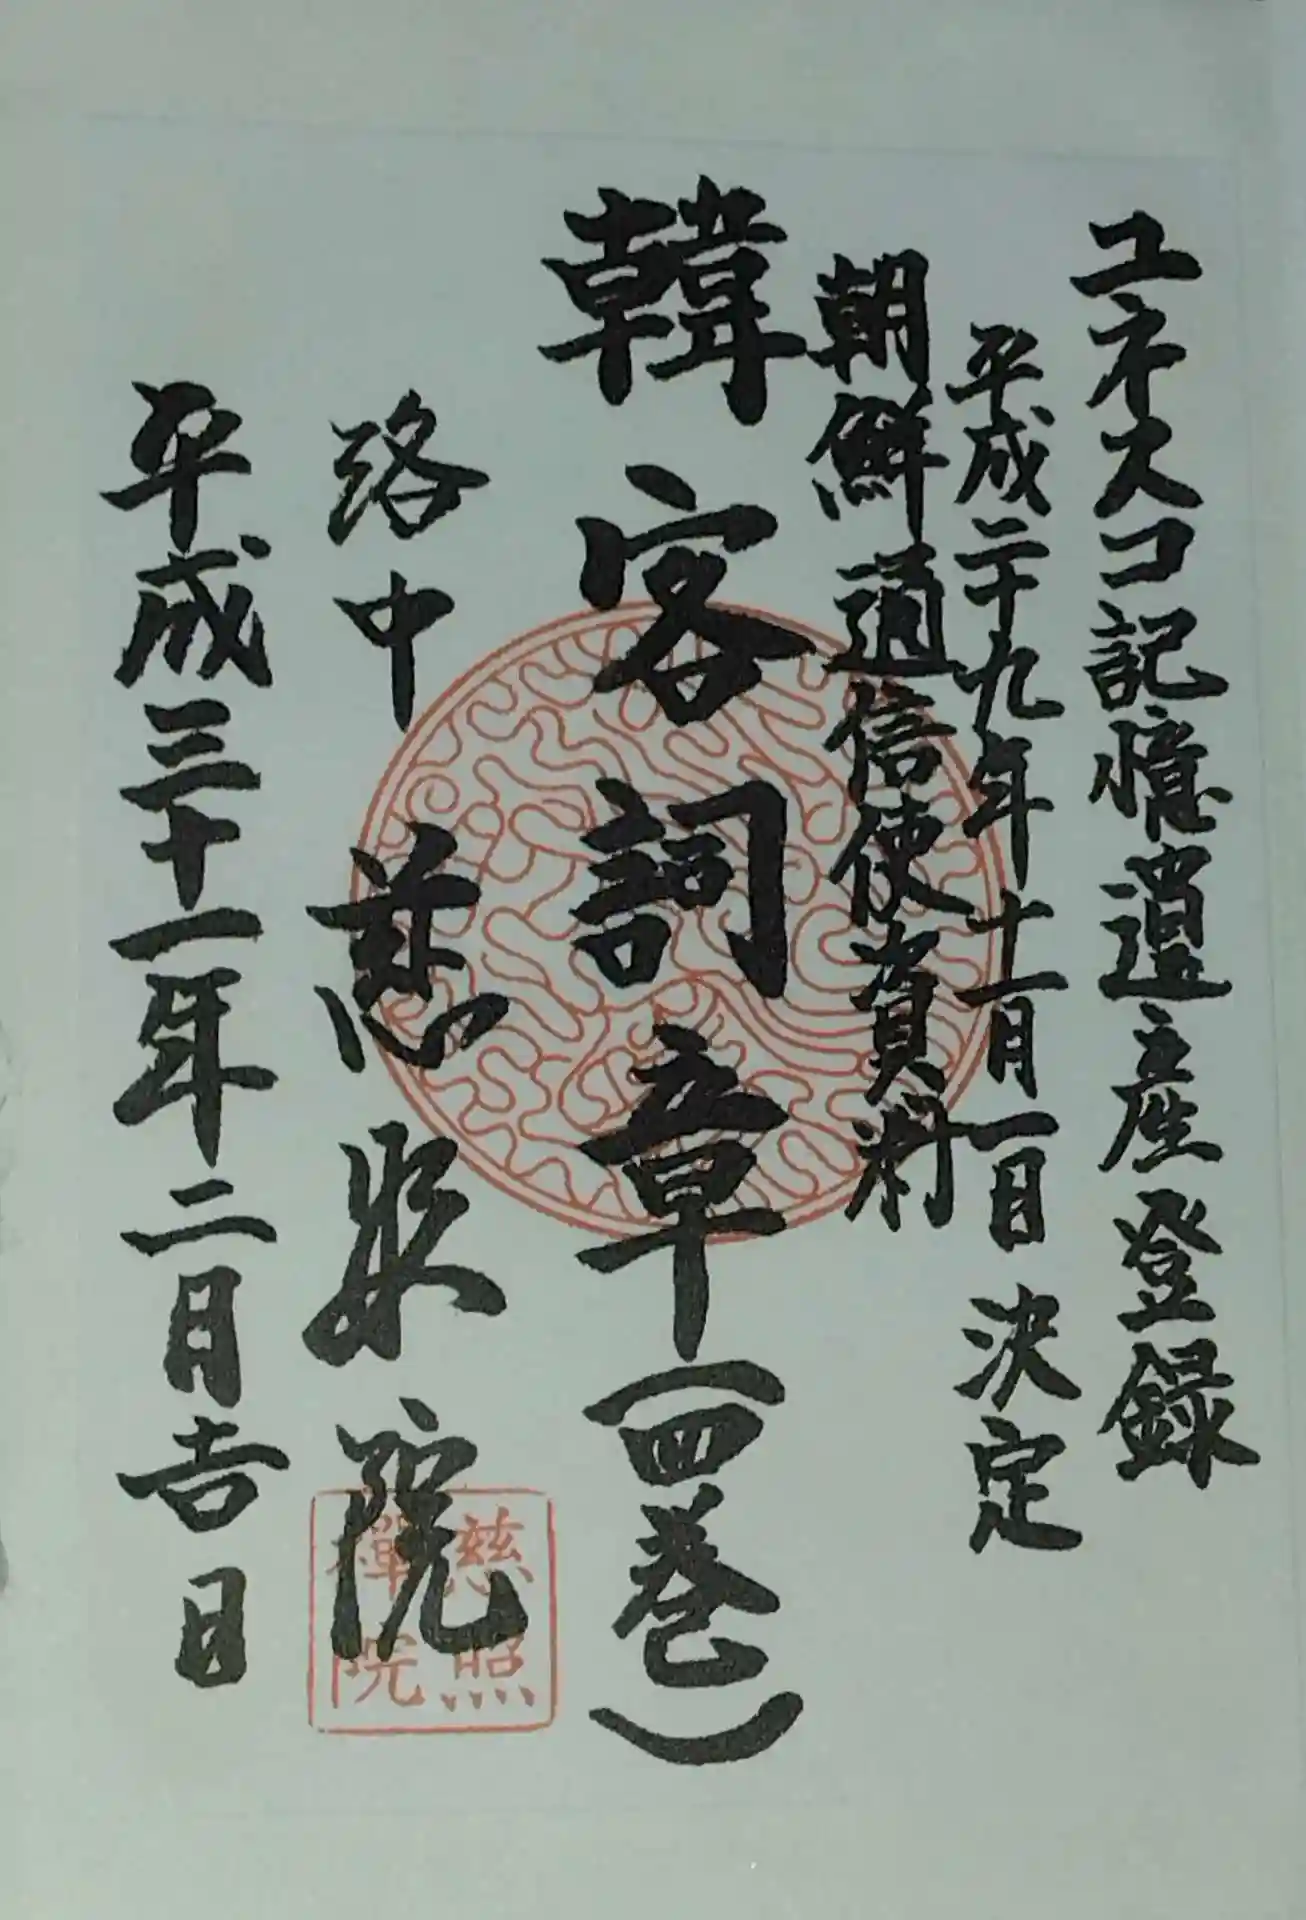 ユネスコ記憶遺産登録
平成二十九年十一月一日 決定
朝鮮通信使資料
韓客詞章(四巻)
洛中 慈照院
平成三十一年二月吉日
慈照
禅院